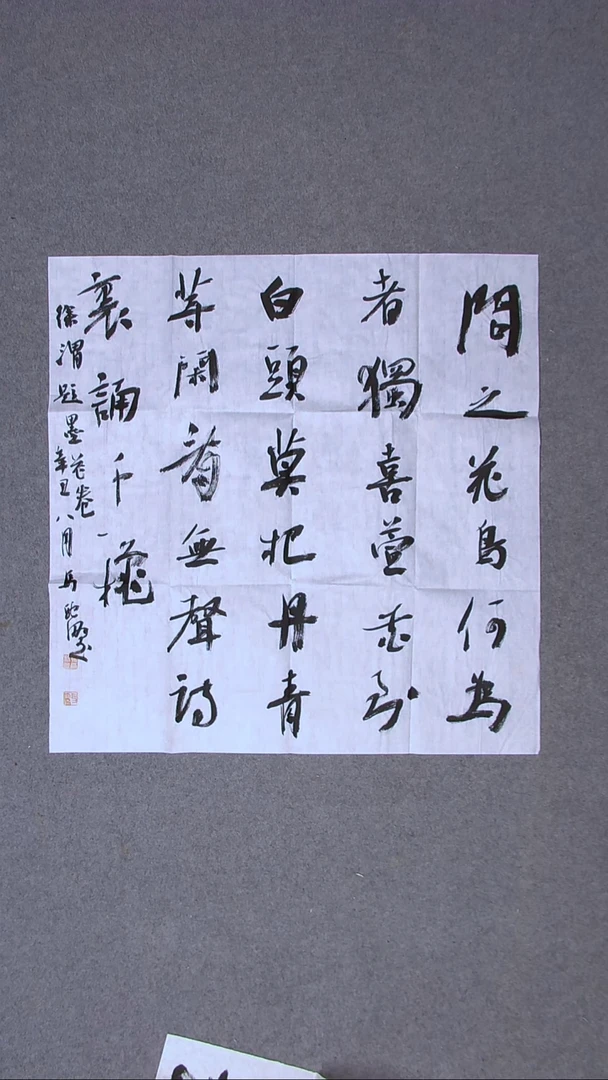 問之花鳥何為
者獨喜萱花到
白頭莫把丹青
等閑看無聲詩
裏誦千穐
徐渭題墨花卷
辛丑八月馬